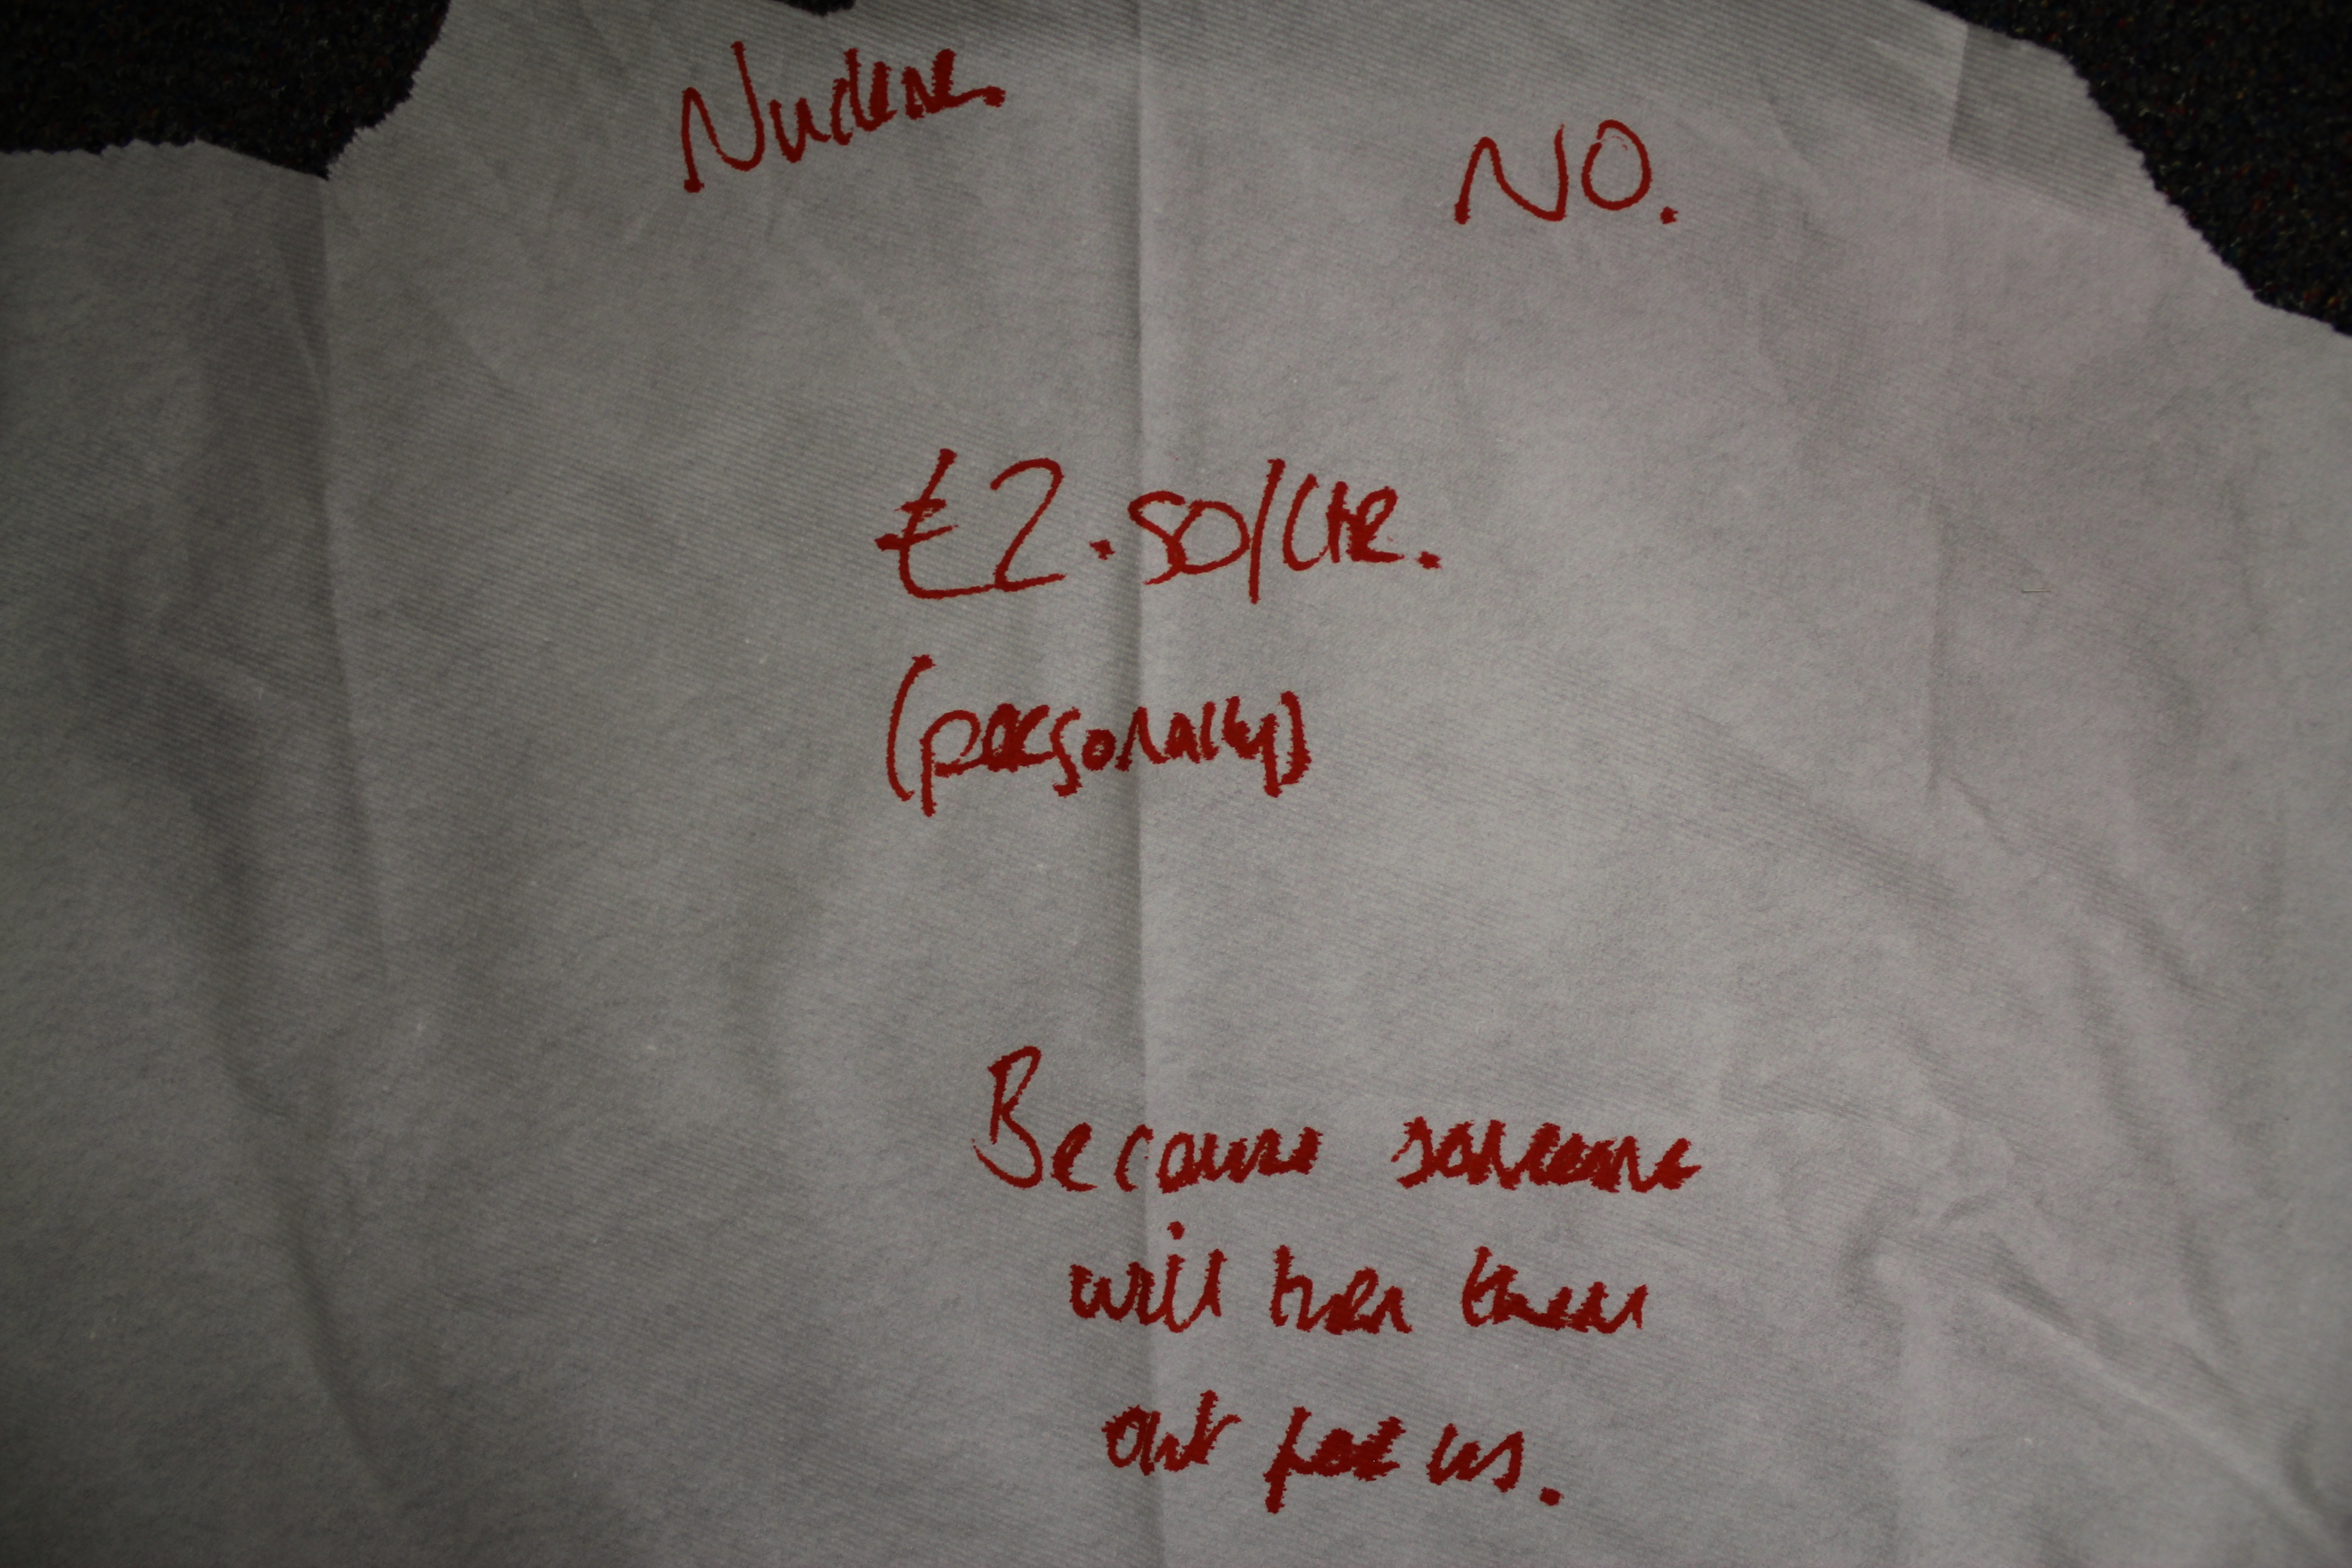 Nuclear
NO.
£2.50/LTR.
(personally)
Because someone
will turn them
out for us.